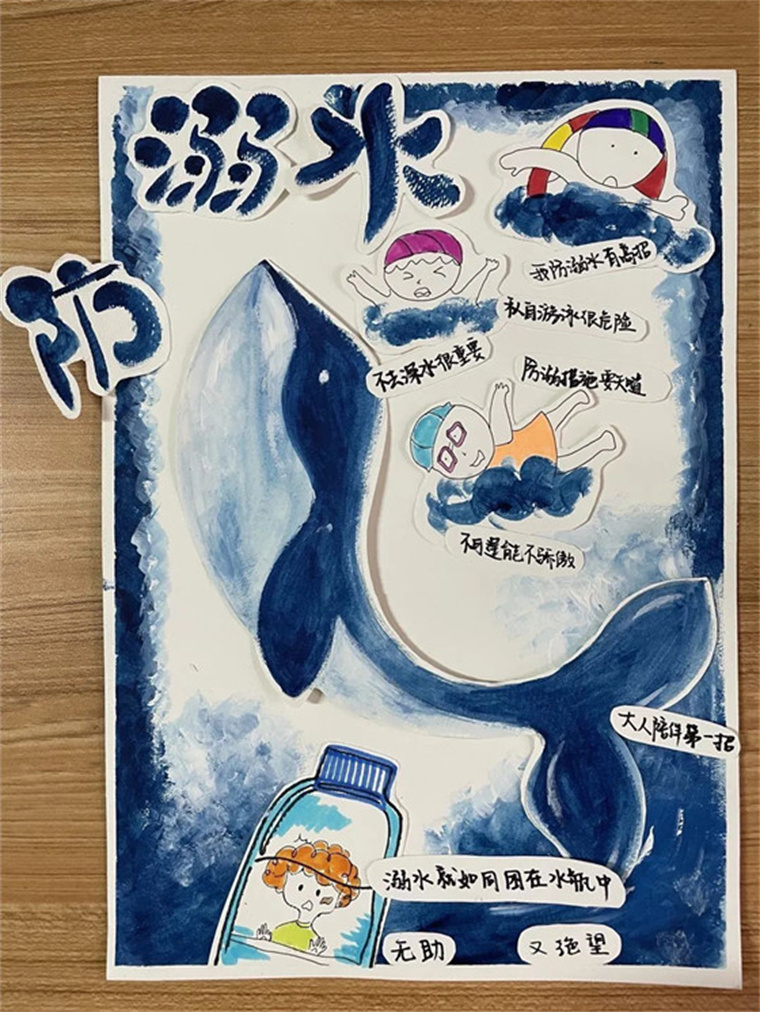 防
溺水
我防溺水有高招
私自游泳很危险
不去深水很重要
防溺措施要知道
不可逞能不骄傲
大人陪伴第一招
溺水就如同困在水瓶中
无助
又绝望